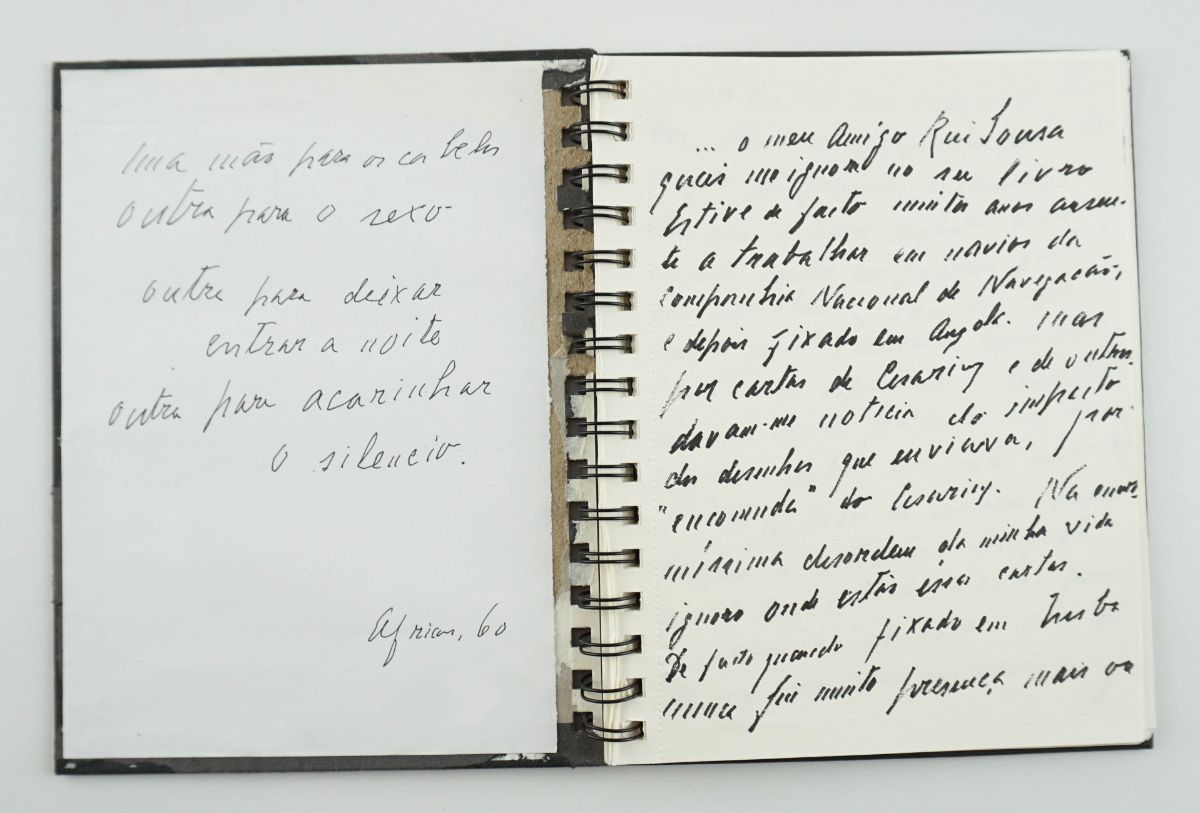 Uma mão para os cabelos
outra para o sexo
outra para deixar
entrar a noite
outra para acarinhar
o silencio.
Africa, 60
... o meu Amigo Rui Sousa
quasi me ignora no seu livro
Estive de facto muitos anos ausen-
te a trabalhar em navios da
Companhia Nacional de Navegação,
e depois fixado em Angola. mas
por cartas de Cesariny e de outros
davam-me noticia do impacto
dos desenhos que enviava, por
"encomenda" do Cesariny. Na enor-
míssima desordem da minha vida
ignoro onde estão essas cartas.
De facto quando fixado em Lisboa
nunca fui muito presença, mais ou